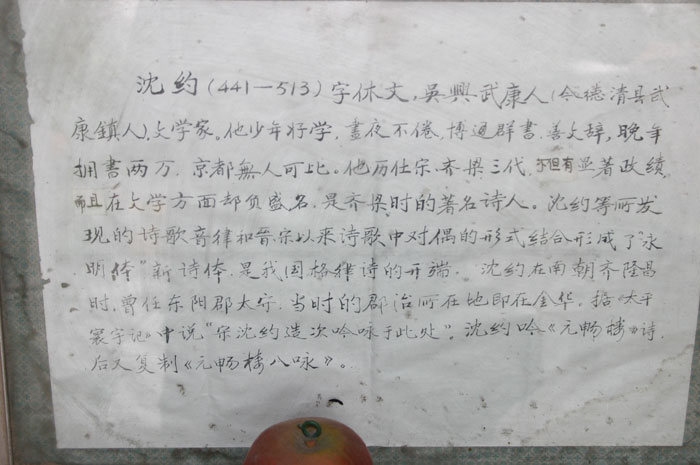 沈约(441—513)字休文,吴興武康人(今德清县武
康鎮人)文学家。他少年好学,晝夜不倦,博通群書,善文辞,晚年
拥書两万,京都無人可比。他历仕宋、齐、梁三代,不但有显著政绩,
而且在文学方面却负盛名,是齐梁时的著名诗人。沈约等所发
现的诗歌音律和晋宋以来诗歌中对偶的形式结合形成了“永
明体”新诗体,是我国格律诗的开端。沈约在南朝齐隆昌
时,曾任东阳郡太守,当时的郡治所在地即在金华,据《太平
寰宇记》中说“宋沈约造次吟咏于此处”。沈约吟《元畅楼》诗,
后又复制《元畅楼八咏》。